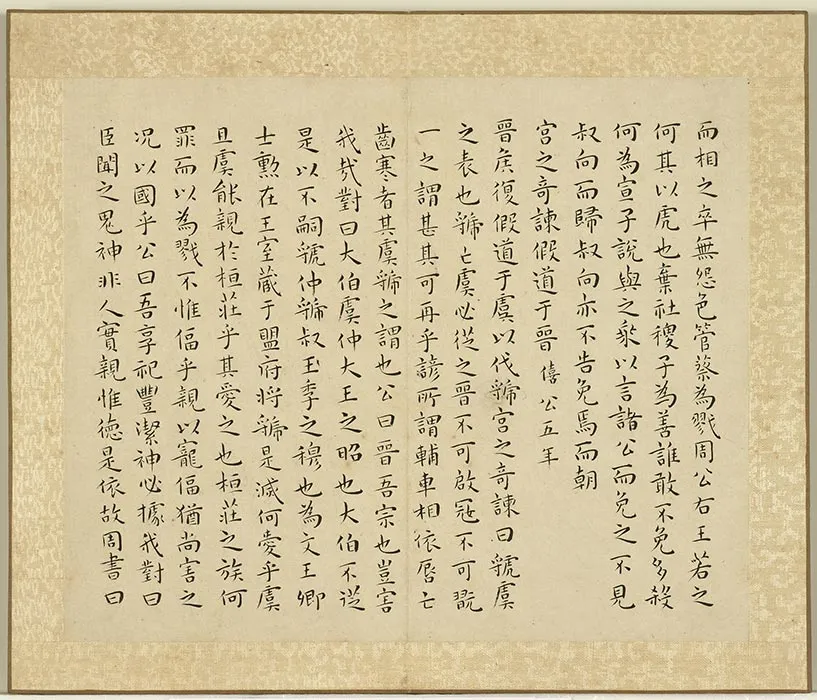 而相之卒無怨色管蔡為戮周公右王若之
何其以虎也棄社稷子為善誰敢不免多殺
何為宣子說與之乘以言諸公而免之不見
叔向而歸叔向亦不告免焉而朝
宮之奇諫假道于晉 僖公五年
晉侯復假道于虞以伐虢宮之奇諫曰虢虞
之表也虢亡虞必從之晉不可啟寇不可翫
一之謂甚其可再乎諺所謂輔車相依唇亡
齒寒者其虞虢之謂也公曰晉吾宗也豈害
我哉對曰大伯虞仲大王之昭也大伯不從
是以不嗣虢仲虢叔王季之穆也為文王卿
士勲在王室藏于盟府將虢是滅何愛乎虞
且虞能親於桓莊乎其愛之也桓莊之族何
罪而以為戮不惟偪乎親以寵偪猶尚害之
况以國乎公曰吾享祀豐潔神必據我對曰
臣聞之鬼神非人實親惟德是依故周書曰